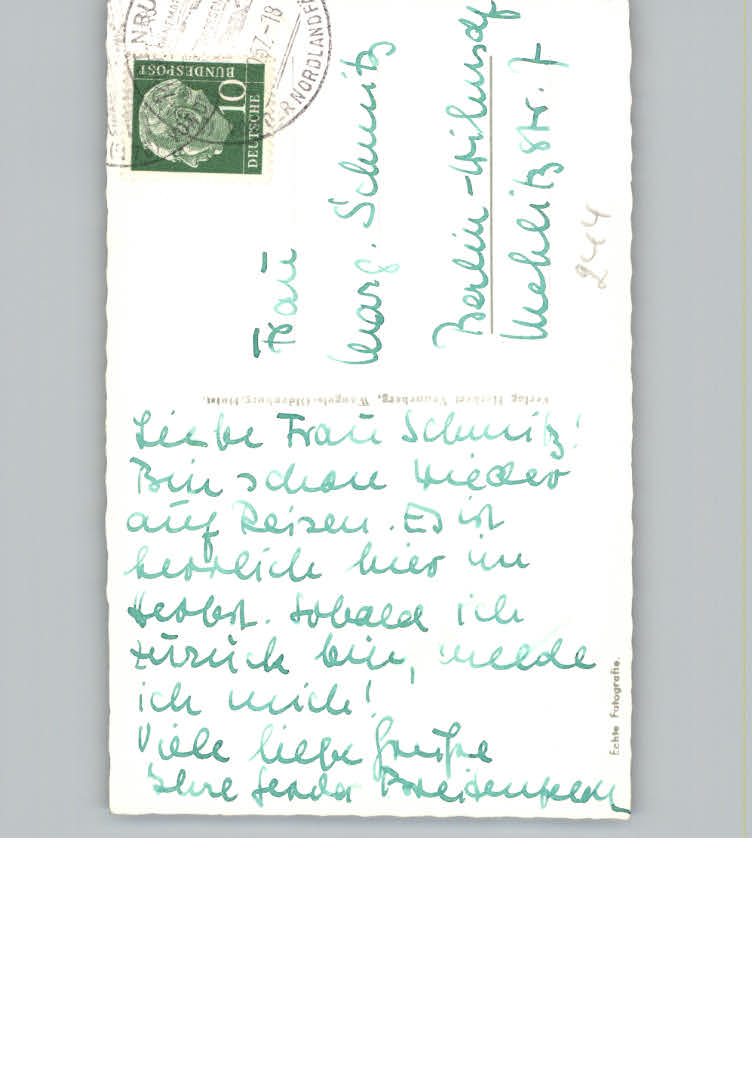 Liebe Frau Schmitz!
Bin schon wieder
auf Reisen. Es ist
herrlich hier im
Herbst. Sobald ich
zurück bin, melde
ich mich!
Viele liebe Grüße
Ihre Gerda Breitenfeld
Frau
Marg. Schmitz
Berlin-Wilmsdf
Mehlitzstr. 7
244
Verlag Herbert Venneberg, Wangels-Oldenburg/Holst.
Echte Fotografie.
DEUTSCHE
BUNDESPOST
10
NORDLAND
57.-18